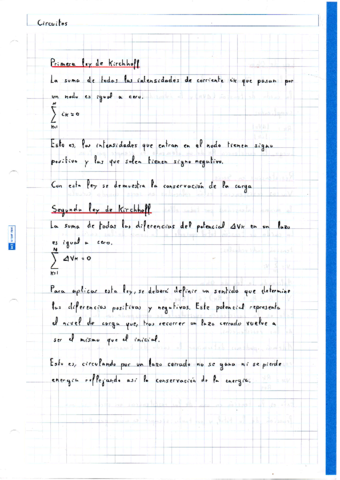 Circuitos
Primera ley de Kirchhoff
La suma de todas las intensidades de corriente in que pasan por
un nodo es igual a cero.
N
∑ in = 0
n=1
Esto es, las intensidades que entran en el nodo tienen signo
positivo y las que salen tienen signo negativo.
Con esta ley se demuestra la conservación de la carga
Segunda ley de Kirchhoff
La suma de todas las diferencias del potencial ΔVn en un lazo
es igual a cero.
N
∑ ΔVn = 0
n=1
Para aplicar esta ley, se deberá definir un sentido que determine
las diferencias positivas y negativas. Este potencial representa
el nivel de carga que, tras recorrer un lazo cerrado vuelve a
ser el mismo que el inicial.
Esto es, circulando por un lazo cerrado no se gana ni se pierde
energía reflejando así la conservación de la energía.